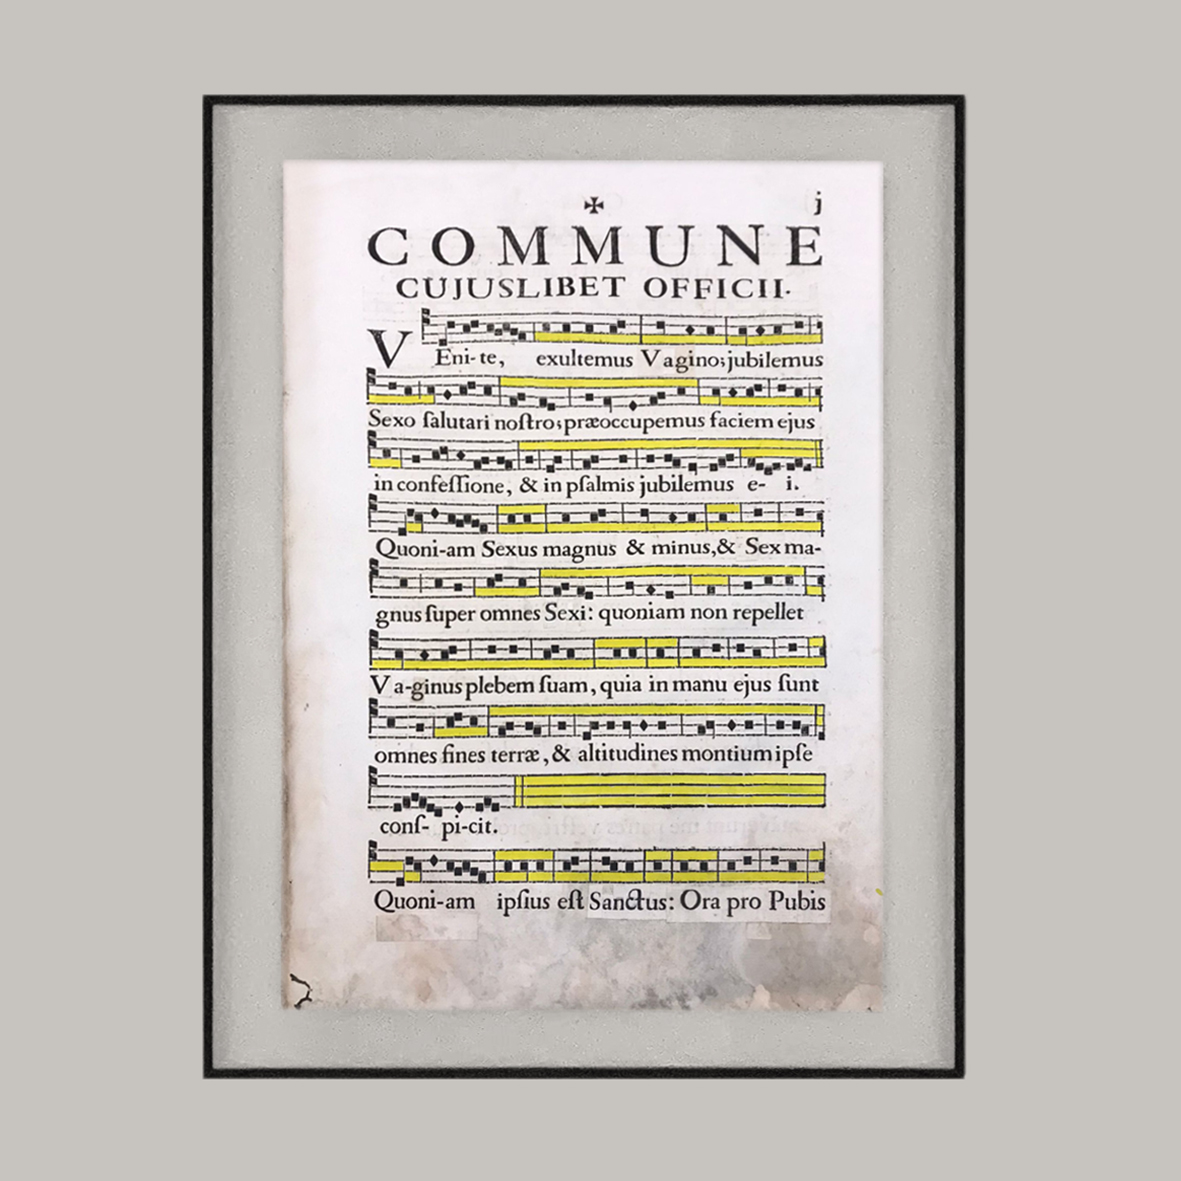 j
COMMUNE
CUJUSLIBET OFFICII.
VEni-te, exultemus Vagino; jubilemus
Sexo ſalutari noſtro; præoccupemus faciem ejus
in confeſſione, & in pſalmis jubilemus e- i.
Quoni-am Sexus magnus & minus, & Sex ma-
gnus ſuper omnes Sexi: quoniam non repellet
Va-ginus plebem ſuam, quia in manu ejus ſunt
omnes fines terræ, & altitudines montium ipſe
conſ- pi-cit.
Quoni-am ipſius eſt Sanctus: Ora pro Pubis